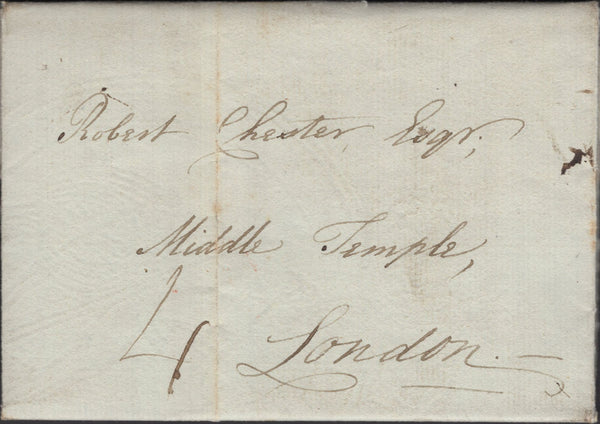 Robert Chester, Esqr,
Middle Temple,
4
London.